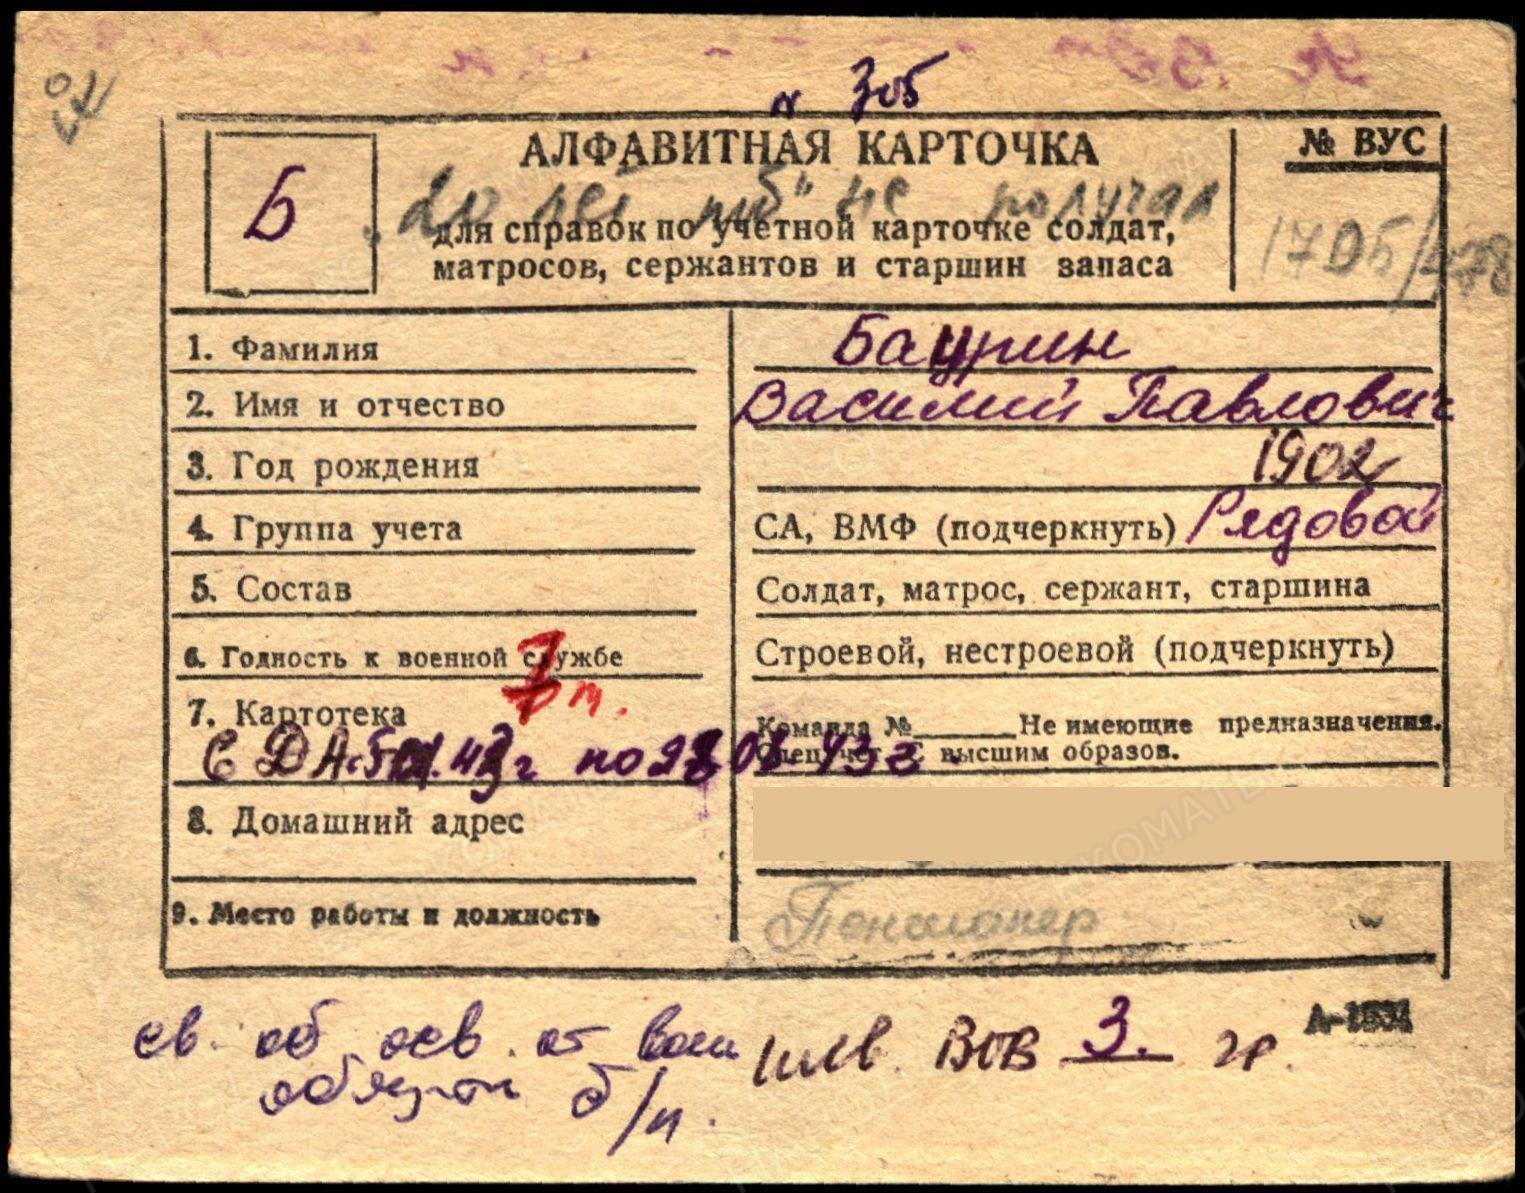 № 305
АЛФАВИТНАЯ КАРТОЧКА
№ ВУС
Б
20 лет не получал
для справок по учетной карточке солдат,
матросов, сержантов и старшин запаса
1795/
1. Фамилия
Баурин
2. Имя и отчество
Василий Павлович
3. Год рождения
1902
4. Группа учета
СА, ВМФ (подчеркнуть) Рядовой
5. Состав
Солдат, матрос, сержант, старшина
6. Годность к военной службе
Строевой, нестроевой (подчеркнуть)
7. Картотека
Команда № Не имеющие предназначения.
Спецучет С высшим образов.
С ДА с по 28 08.43 г.
8. Домашний адрес
9. Место работы и должность
Пенсионер
св. об осв. от воин
обязрн б/н.
инв. ВОВ 3. гр.
А-1534